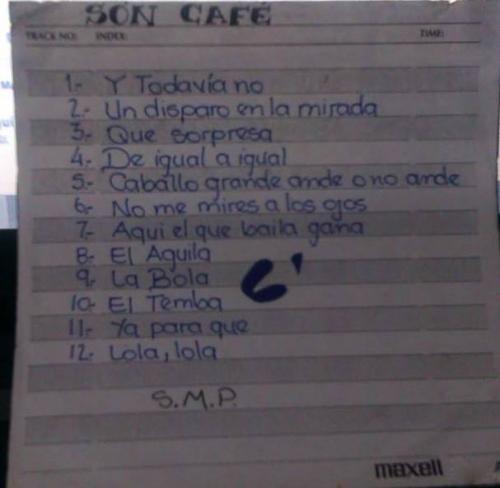 SON CAFÉ
TRACK NO: INDEX: TIME:
1.- Y Todavía no
2.- Un disparo en la mirada
3.- Que sorpresa
4.- De igual a igual
5.- Caballo grande ande o no ande
6.- No me mires a los ojos
7.- Aqui el que baila gana
8.- El Aguila
9.- La Bola
10.- El Temba
11.- Ya para que
12.- Lola, lola
S.M.P.
maxell